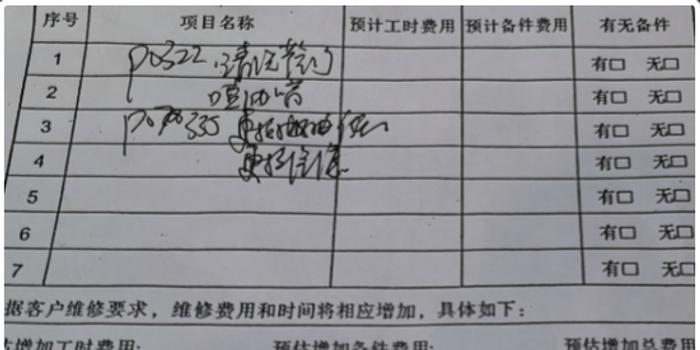 序号 项目名称 预计工时费用 预计备件费用 有无备件
1 P0322 清洗节门 有□ 无□
2 喷油嘴 有□ 无□
3 更换 有□ 无□
4 更换 有□ 无□
5 有□ 无□
6 有□ 无□
7 有□ 无□
据客户维修要求，维修费用和时间将相应增加，具体如下：
估增加工时费用: 预估增加备件费用: 预估增加总费用